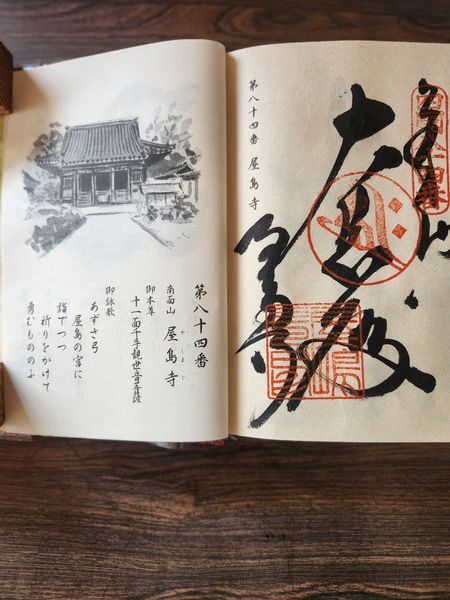 大悲殿
屋島寺
第八十四番 屋島寺
第八十四番
南面山 屋島寺
やしまじ
御本尊
十一面千手観世音菩薩
御詠歌
あずさ弓
屋島の宮に
詣でつつ
祈りをかけて
勇むもののふ